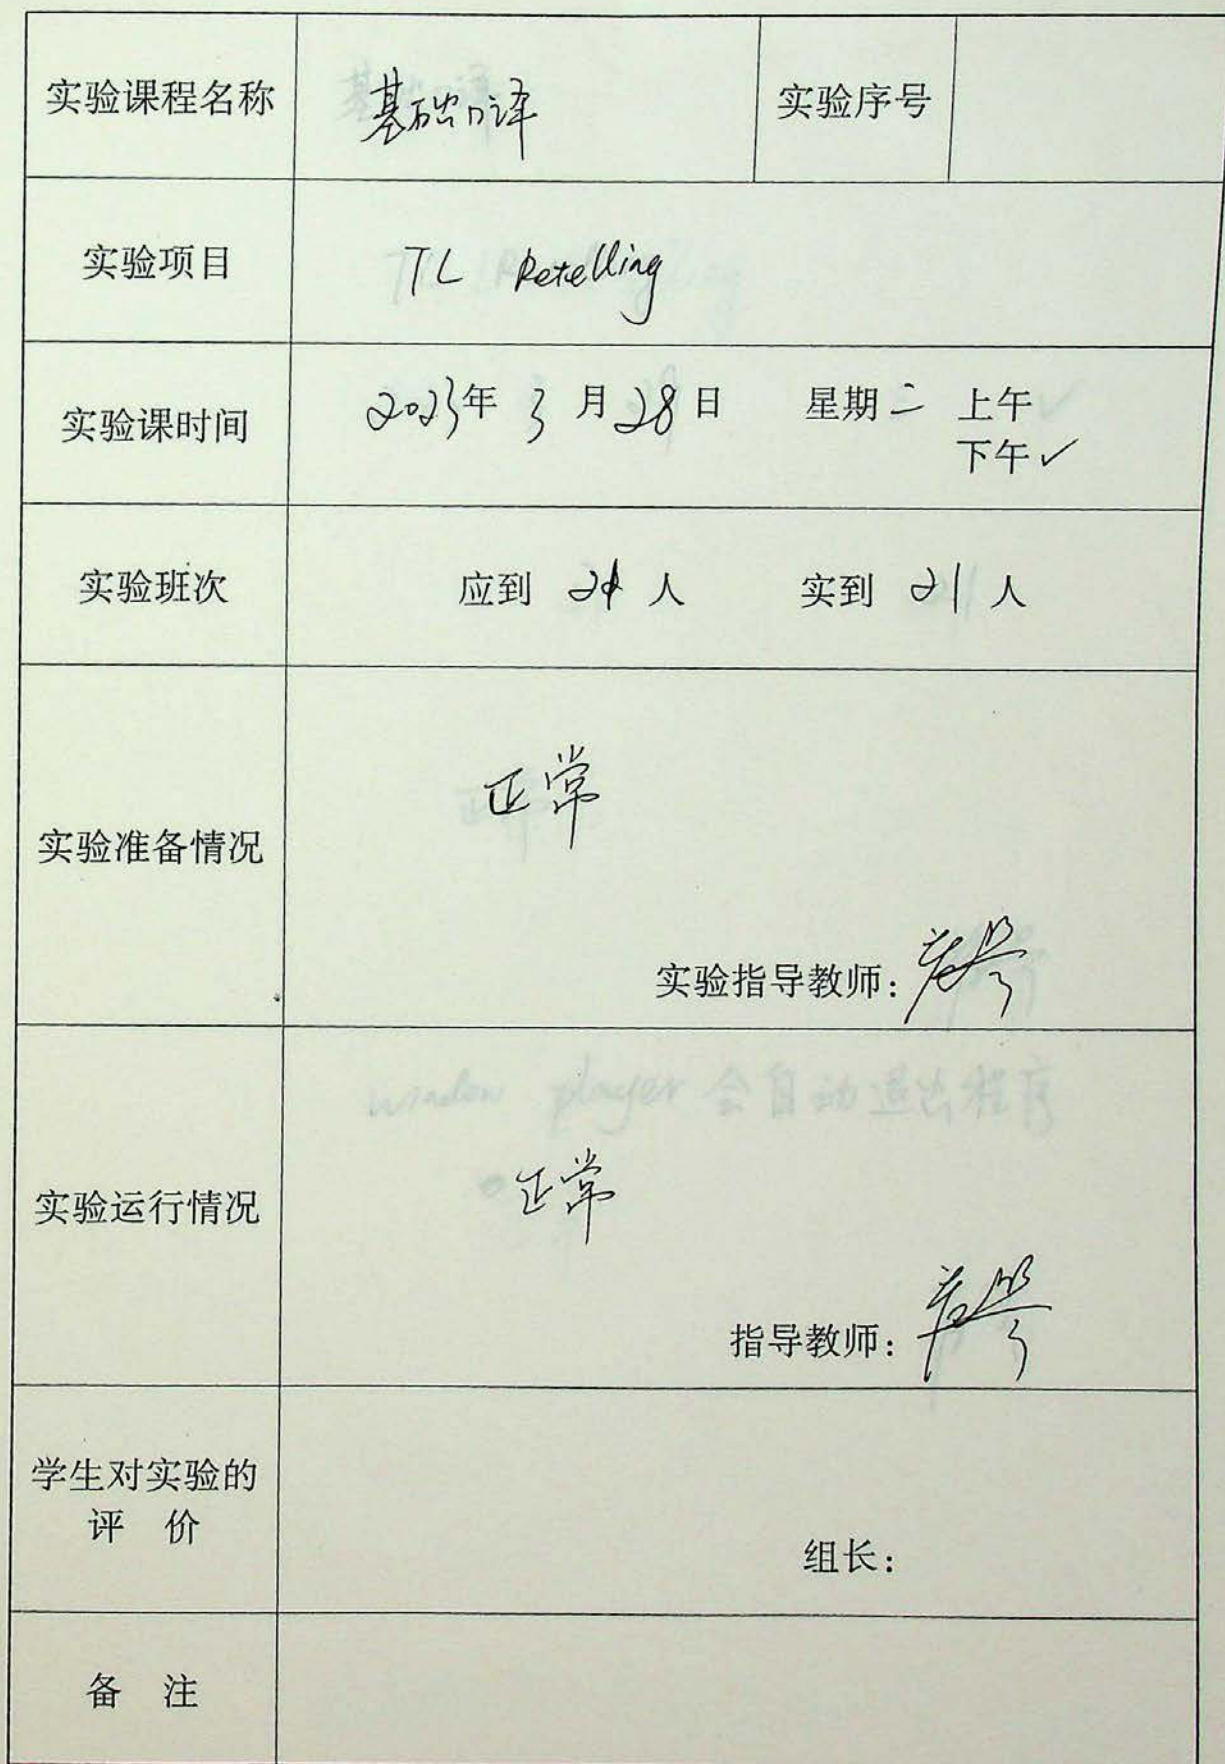 实验课程名称 基础口译 实验序号
实验项目 TL Retelling
实验课时间 2023年 3 月 28 日 星期二 上午
下午✓
实验班次 应到 21 人 实到 21 人
实验准备情况 正常
实验指导教师:
window player 会自动退出程序
实验运行情况 正常
指导教师:
学生对实验的
评 价
组长:
备 注